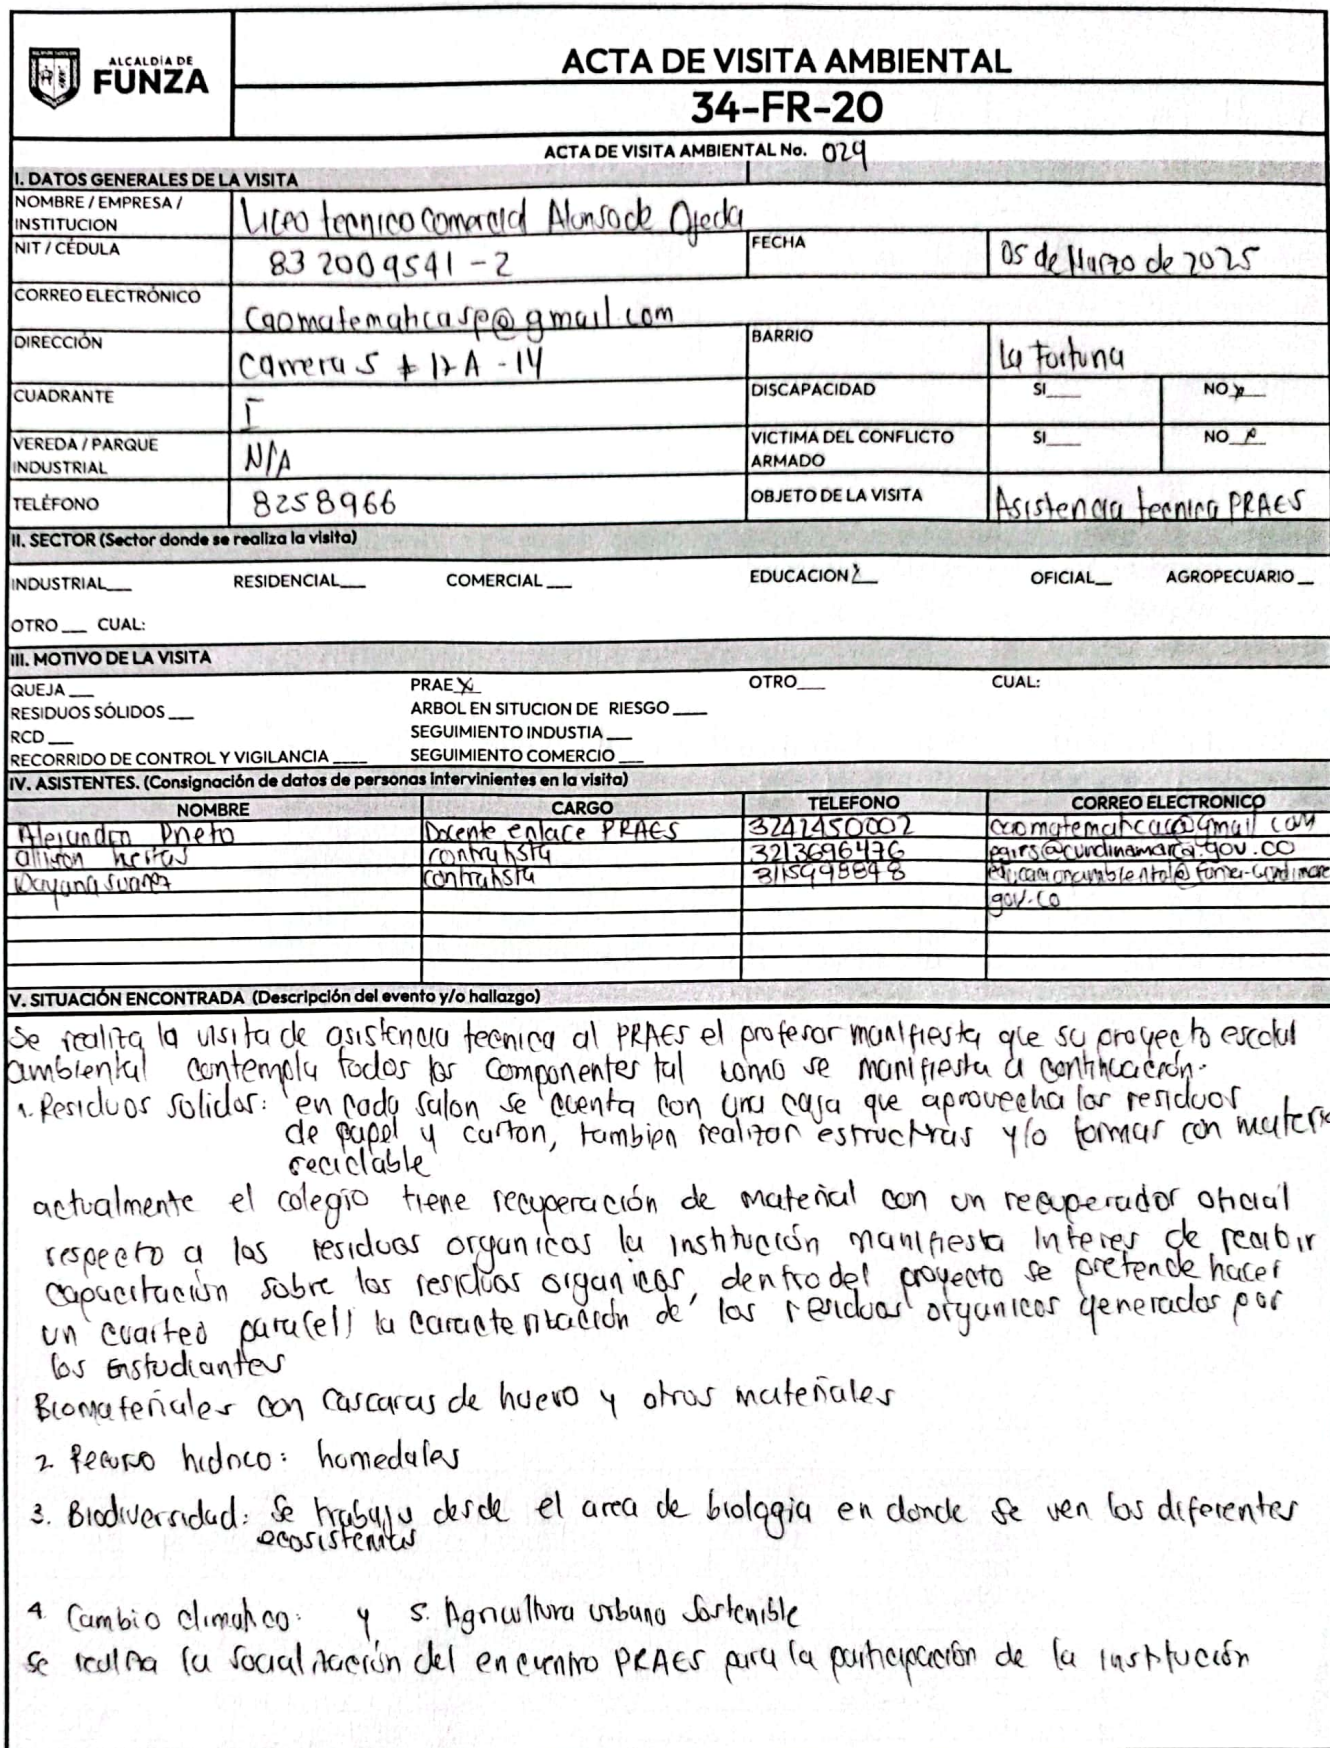 ALCALDÍA DE
FUNZA
ACTA DE VISITA AMBIENTAL
34-FR-20
ACTA DE VISITA AMBIENTAL No. 029
I. DATOS GENERALES DE LA VISITA
NOMBRE / EMPRESA / INSTITUCION Liceo tecnico comercial Alonso de Ojeda
NIT / CÉDULA 832009541-2 FECHA 05 de Marzo de 2025
CORREO ELECTRÓNICO caomatematicasp@gmail.com
DIRECCIÓN Carrera 5 # 12 A - 14 BARRIO La Fortuna
CUADRANTE I DISCAPACIDAD SI___ NO x
VEREDA / PARQUE INDUSTRIAL N/A VICTIMA DEL CONFLICTO ARMADO SI___ NO x
TELÉFONO 8258966 OBJETO DE LA VISITA Asistencia tecnica PRAES
II. SECTOR (Sector donde se realiza la visita)
INDUSTRIAL___ RESIDENCIAL___ COMERCIAL ___ EDUCACION X OFICIAL__ AGROPECUARIO __
OTRO ___ CUAL:
III. MOTIVO DE LA VISITA
QUEJA ___ PRAE X OTRO___ CUAL:
RESIDUOS SÓLIDOS ___ ARBOL EN SITUCION DE RIESGO ____
RCD ___ SEGUIMIENTO INDUSTIA ___
RECORRIDO DE CONTROL Y VIGILANCIA ____ SEGUIMIENTO COMERCIO ___
IV. ASISTENTES. (Consignación de datos de personas intervinientes en la visita)
NOMBRE CARGO TELEFONO CORREO ELECTRONICO
Alejandro Prieto Docente enlace PRAES 3242450002 @gmail.com
contratista 3213696476 pgirs@cundinamarca.gov.co
Dayana Suarez contratista 3115998848
gov.co
V. SITUACIÓN ENCONTRADA (Descripción del evento y/o hallazgo)
Se realiza la visita de asistencia tecnica al PRAES el profesor manifiesta que su proyecto escolar
ambiental contempla todos los componentes tal como se manifiesta a continuación.
1. Residuos solidos: en cada salon se cuenta con una caja que aprovecha los residuos
de papel y carton, tambien realizan estructuras y/o formas con materia
reciclable
actualmente el colegio tiene recuperación de material con un recuperador oficial
respecto a los residuos organicos la institución manifiesta interes de recibir
capacitación sobre los residuos organicos, dentro del proyecto se pretende hacer
un cuarteo para (el) la caracterización de los residuos organicos generados por
los Estudiantes
Biomateriales con cascaras de huevo y otros materiales
2. Recurso hidrico: humedales
3. Biodiversidad: Se trabaja desde el area de biologia en donde se ven los diferentes
ecosistemas
4 Cambio climatico: y 5. Agricultura urbana Sostenible
se realiza la socialización del encuentro PRAES para la participación de la institución